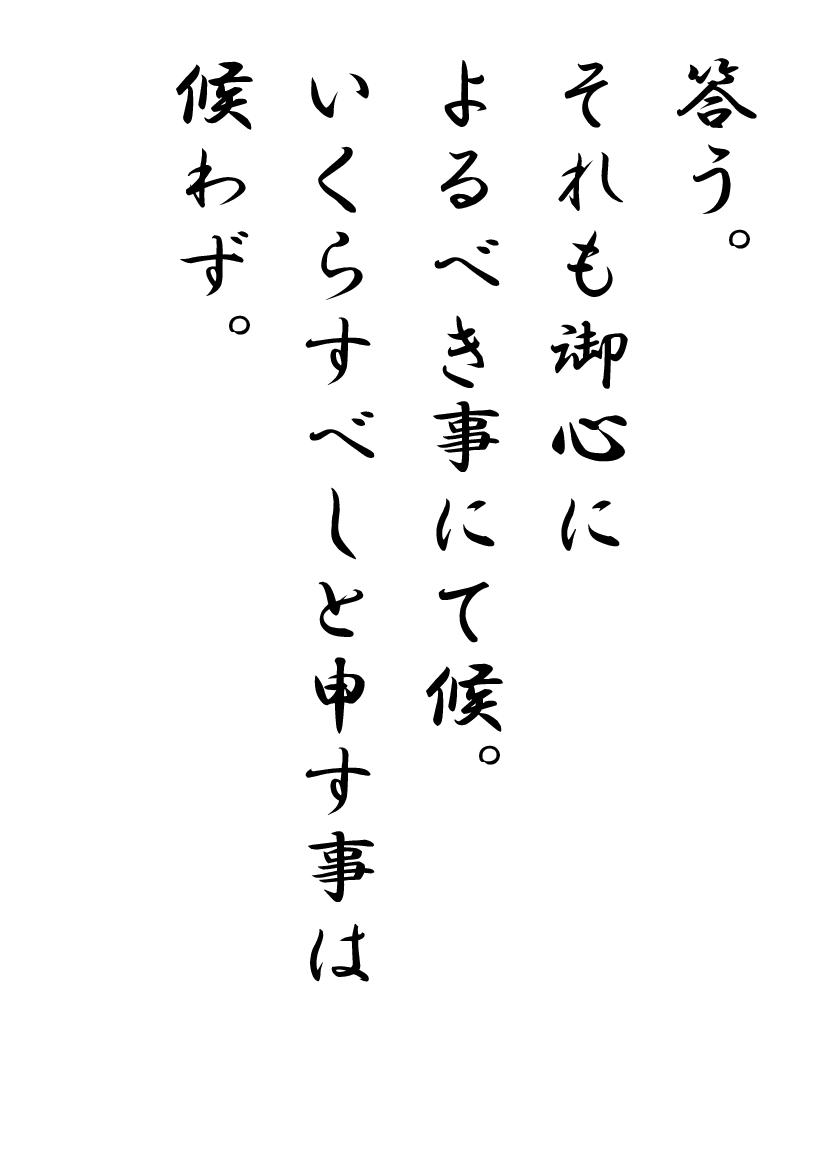 答う。
それも御心に
よるべき事にて候。
いくらすべしと申す事は
候わず。